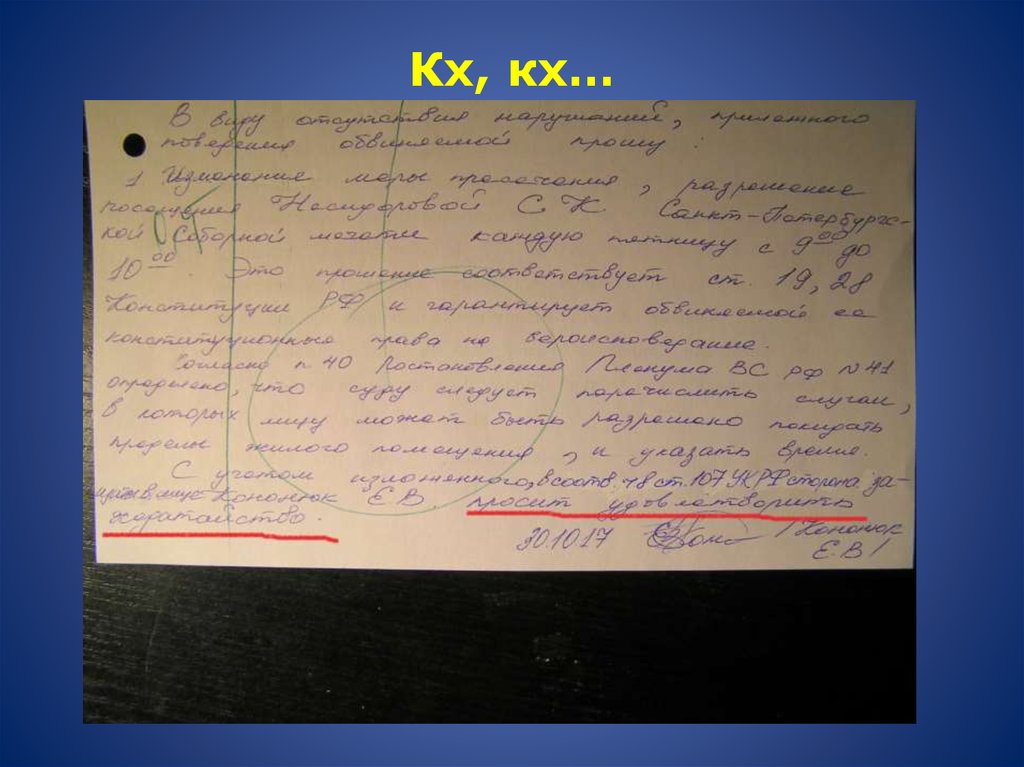 Кх, кх...
В виду отсутствия нарушений, прилежного
поведения обвиняемой прошу :
1 Изменение меры пресечения, разрешение
посещения Насидоровой С К Санкт-Петербургс-
кой Соборной мечети каждую пятницу с 9⁰⁰ до
10⁰⁰. Это прошение соответствует ст. 19, 28
Конституции РФ и гарантирует обвиняемой ее
конституционные права на вероисповедание.
Согласно п 40 Постановления Пленума ВС РФ N 41
определено, что суду следует перечислить случаи,
в которых лицу может быть разрешено покидать
пределы жилого помещения, и указать время.
С учетом изложенного, в соотв. ч8 ст. 107 УК РФ сторона за-
щиты в лице Кононюк Е В. просит удовлетворить
ходатайство.
30.10.17 /Кононюк
Е. В/